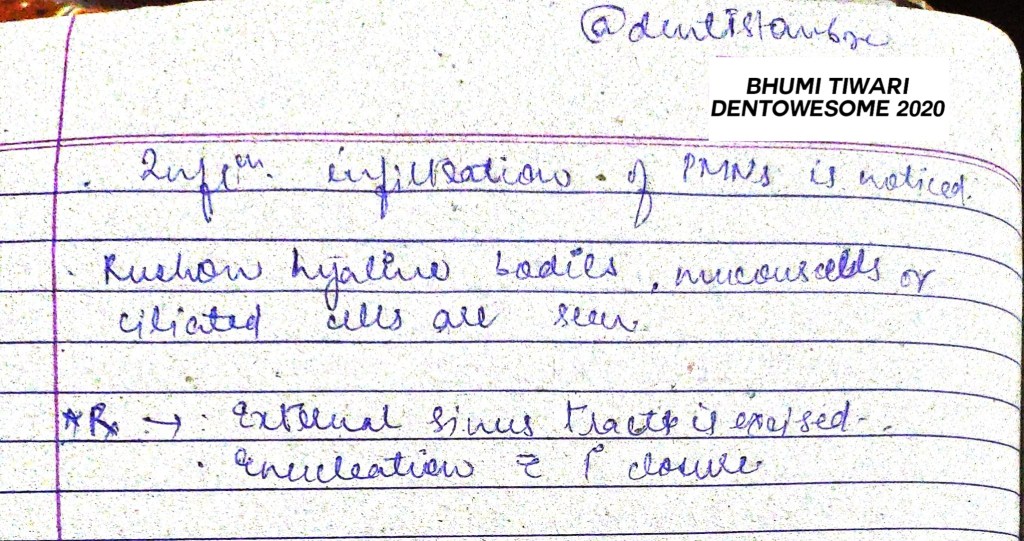 @dentistambze
BHUMI TIWARI
DENTOWESOME 2020
. Inflm. infiltration . of PMNs is noticed.
. Rushton hyaline bodies, mucous cells or
ciliated cells are seen.
*Rx → . External sinus tracts is excised.
. Enucleation c̄ 1° closure